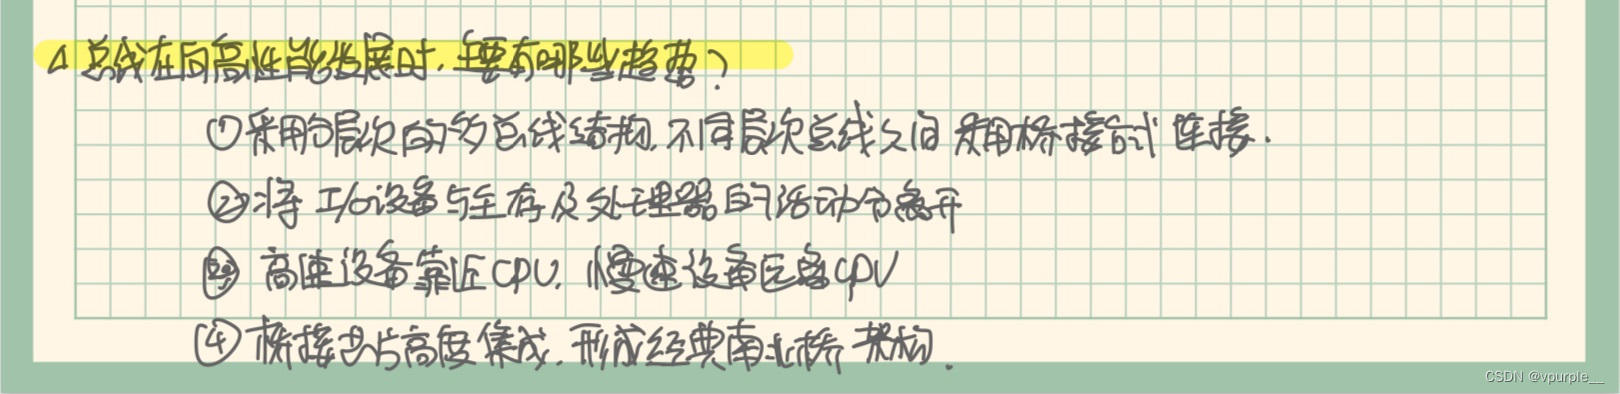 △总线在向高性能发展时,主要有哪些趋势?
①采用分层次的多总线结构,不同层次总线之间采用桥接方式连接.
②将I/O设备与主存及处理器的活动分离开
③高速设备靠近CPU,慢速设备远离CPU
④桥接芯片高度集成,形成经典南北桥架构.
CSDN @vpurple__